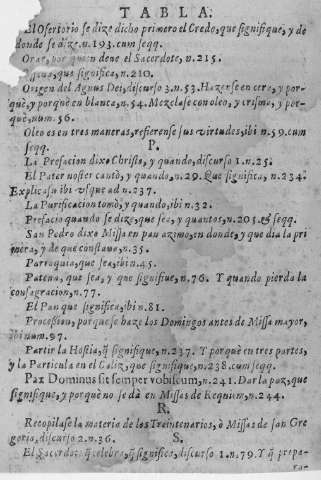 TABLA.
El Ofertorio se dize dicho primero el Credo, que significa, y de
donde se dize. n. 193. cum seqq.
Orar, por quien deue el Sacerdote, n. 215.
que significa, n. 210.
Origen del Agnus Dei, discurso 3. n. 53. Hazense en cera, y por-
que, y porquè en blanca, n. 54. Mezclase con oleo, y crisma, y por-
què, num. 56.
Oleo es en tres maneras, refierense sus virtudes, ibi n. 59. cum
seqq.
P.
La Prefacion dixo Christo, y quando, discurso 1. n. 25.
El Pater noster cantò, y quando, n. 29. Que significa, n. 234.
Explicase ibi vsque ad n. 237.
La Purificacion tomò, y quando, ibi n. 32.
Prefacio quando se dize, que sea, y quantos, n. 205. & seqq.
San Pedro dixo Missa en pan azimo, en donde, y que dia la pri
mera, y de que constaua, n. 35.
Parroquia, que sea, ibi n. 45.
Patena, que sea, y que significa, n. 76. Y quando pierda la
consagracion, n. 77.
El Pan que significa, ibi n. 81.
Procession, porque se haze los Domingos antes de Missa mayor,
ibi num. 97.
Partir la Hostia, q̃ significa, n. 237. Y porquè en tres partes,
y la Particula en el Caliz, que significa, n. 238. cum seqq.
Pax Dominus sit semper vobiscum, n. 241. Dar la paz, que
significa, y porquè no se dà en Missas de Requiem, n. 244.
R.
Recopilase la materia de los Treintenarios, ò Missas de san Gre
goria, discurso 2. n. 36.
S.
El Sacerdote q̃ celebra, q̃ significa, discurso 1. n. 79. Y q̃ prepa-